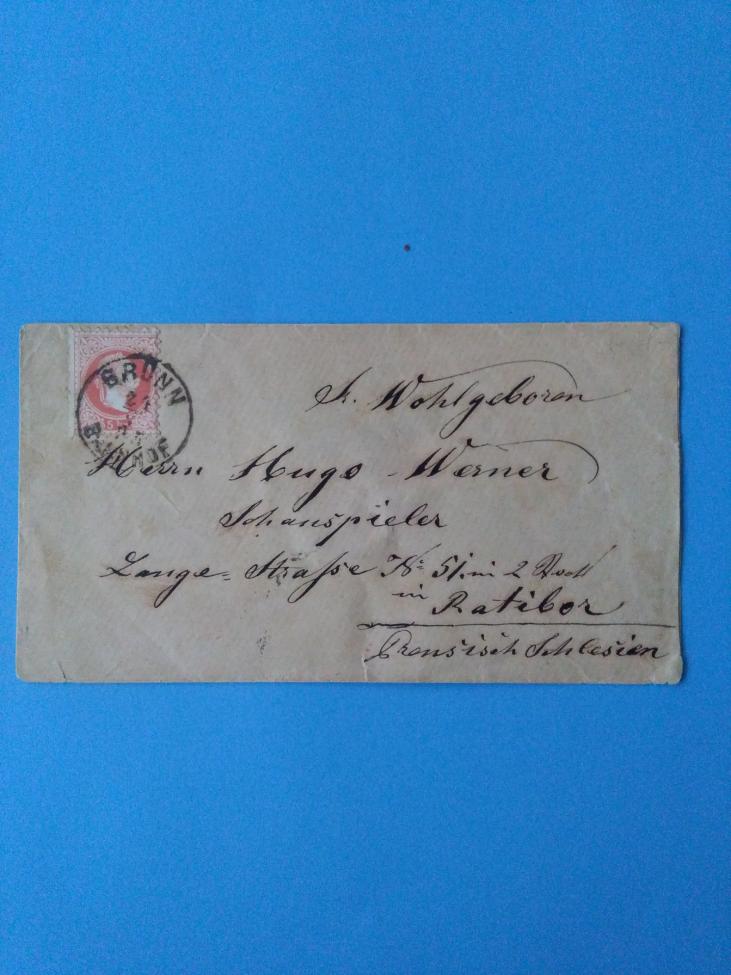 BRÜNN
BAHNHOF
5
Sr. Wohlgeboren
Herrn Hugo Werner
Schauspieler
Lange=Strasse No. 51. im 2 Stock
in Ratibor
Preusisch Schlesien